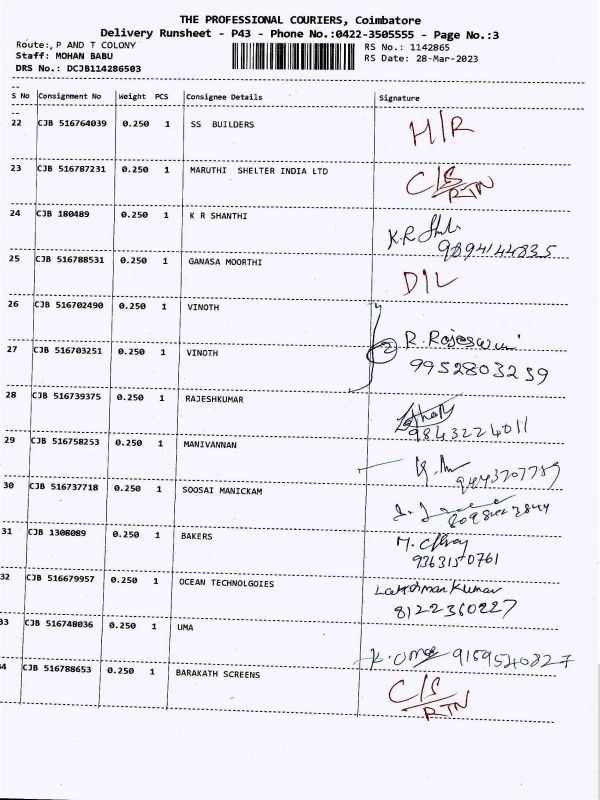 THE PROFESSIONAL COURIERS, Coimbatore
Delivery Runsheet - P43 - Phone No.:0422-3505555 - Page No.:3
Route:, P AND T COLONY
RS No.: 1142865
Staff: MOHAN BABU
RS Date: 28-Mar-2023
DRS No.: DCJB114286503
S No Consignment No Weight PCS Consignee Details Signature
22 CJB 516764039 0.250 1 SS BUILDERS H/R
23 CJB 516787231 0.250 1 MARUTHI SHELTER INDIA LTD C/S
RTN
24 CJB 180489 0.250 1 K R SHANTHI K.R
9894144835
25 CJB 516788531 0.250 1 GANASA MOORTHI D/L
26 CJB 516702490 0.250 1 VINOTH
R. Rajeswari
27 CJB 516703251 0.250 1 VINOTH 2
9952803259
28 CJB 516739375 0.250 1 RAJESHKUMAR
9843224011
29 CJB 516758253 0.250 1 MANIVANNAN
9443707789
30 CJB 516737718 0.250 1 SOOSAI MANICKAM
31 CJB 1308089 0.250 1 BAKERS M.
9363150761
32 CJB 516679957 0.250 1 OCEAN TECHNOLGOIES Lakshman Kumar
8122360227
33 CJB 516748036 0.250 1 UMA K. Uma 9159540827
34 CJB 516788653 0.250 1 BARAKATH SCREENS C/S
RTN